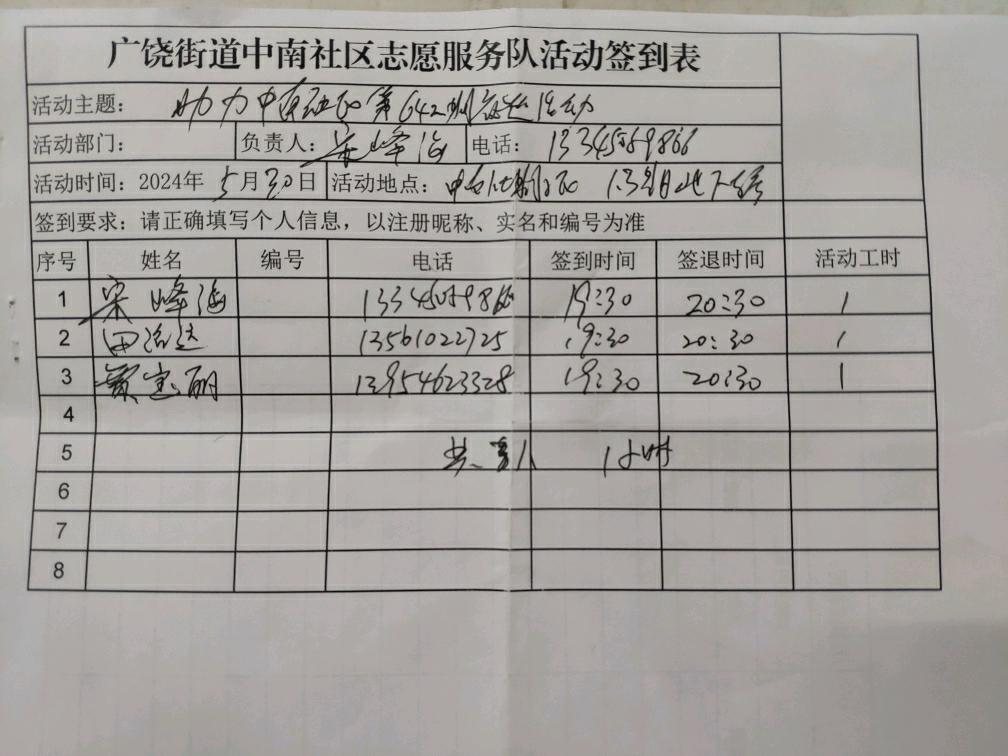 广饶街道中南社区志愿服务队活动签到表
活动主题： 助力中南社区第642期 活动
活动部门： 负责人：宋峰海 电话：13345469866
活动时间：2024年5月30日 活动地点：中南 地下
签到要求：请正确填写个人信息，以注册昵称、实名和编号为准
序号 姓名 编号 电话 签到时间 签退时间 活动工时
1 宋峰海 13345469866 19:30 20:30 1
2 田 13561022725 19:30 20:30 1
3 贾宝丽 13954623328 19:30 20:30 1
4
5 共 人 1小时
6
7
8